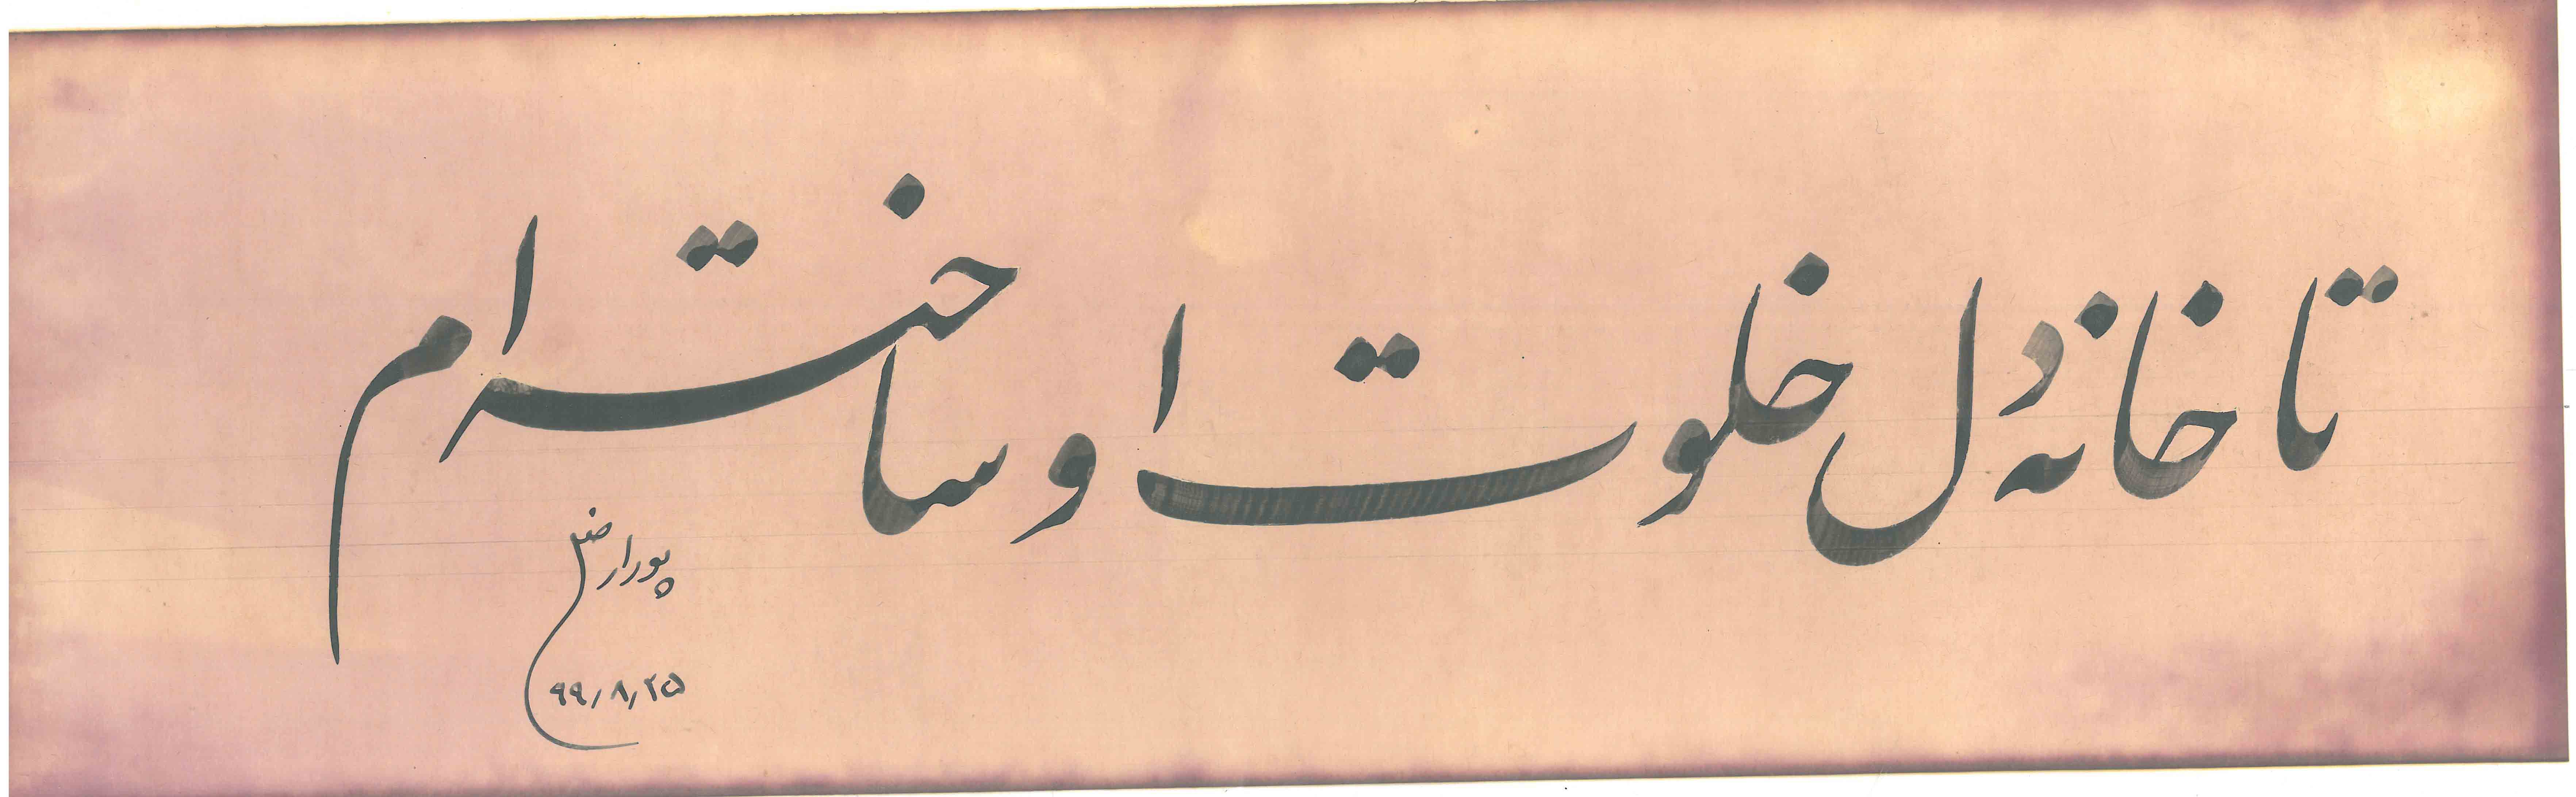 تا خانهٔ دل خلوت او ساخته‌ام
پورارضی
۹۹/۸/۲۵